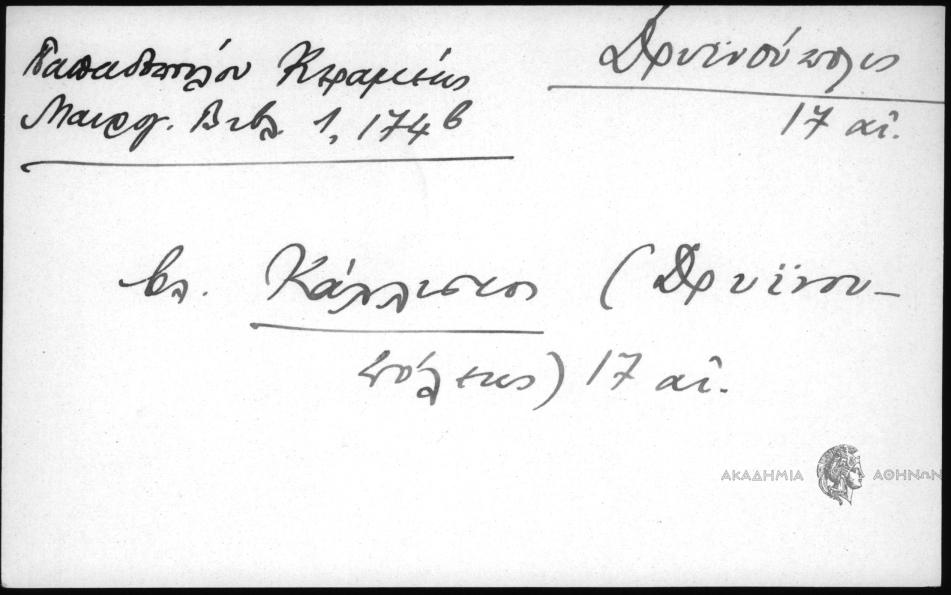 Παπαδοπούλου Κεραμεύς
Μαυρογ. Βιβλ. 1, 174 β
Δρυϊνούπολις
17 αἰ.
βλ. Κάλλιστος (Δρυϊνου-
πόλεως) 17 αἰ.
ΑΚΑΔΗΜΙΑ ΑΘΗΝΩΝ